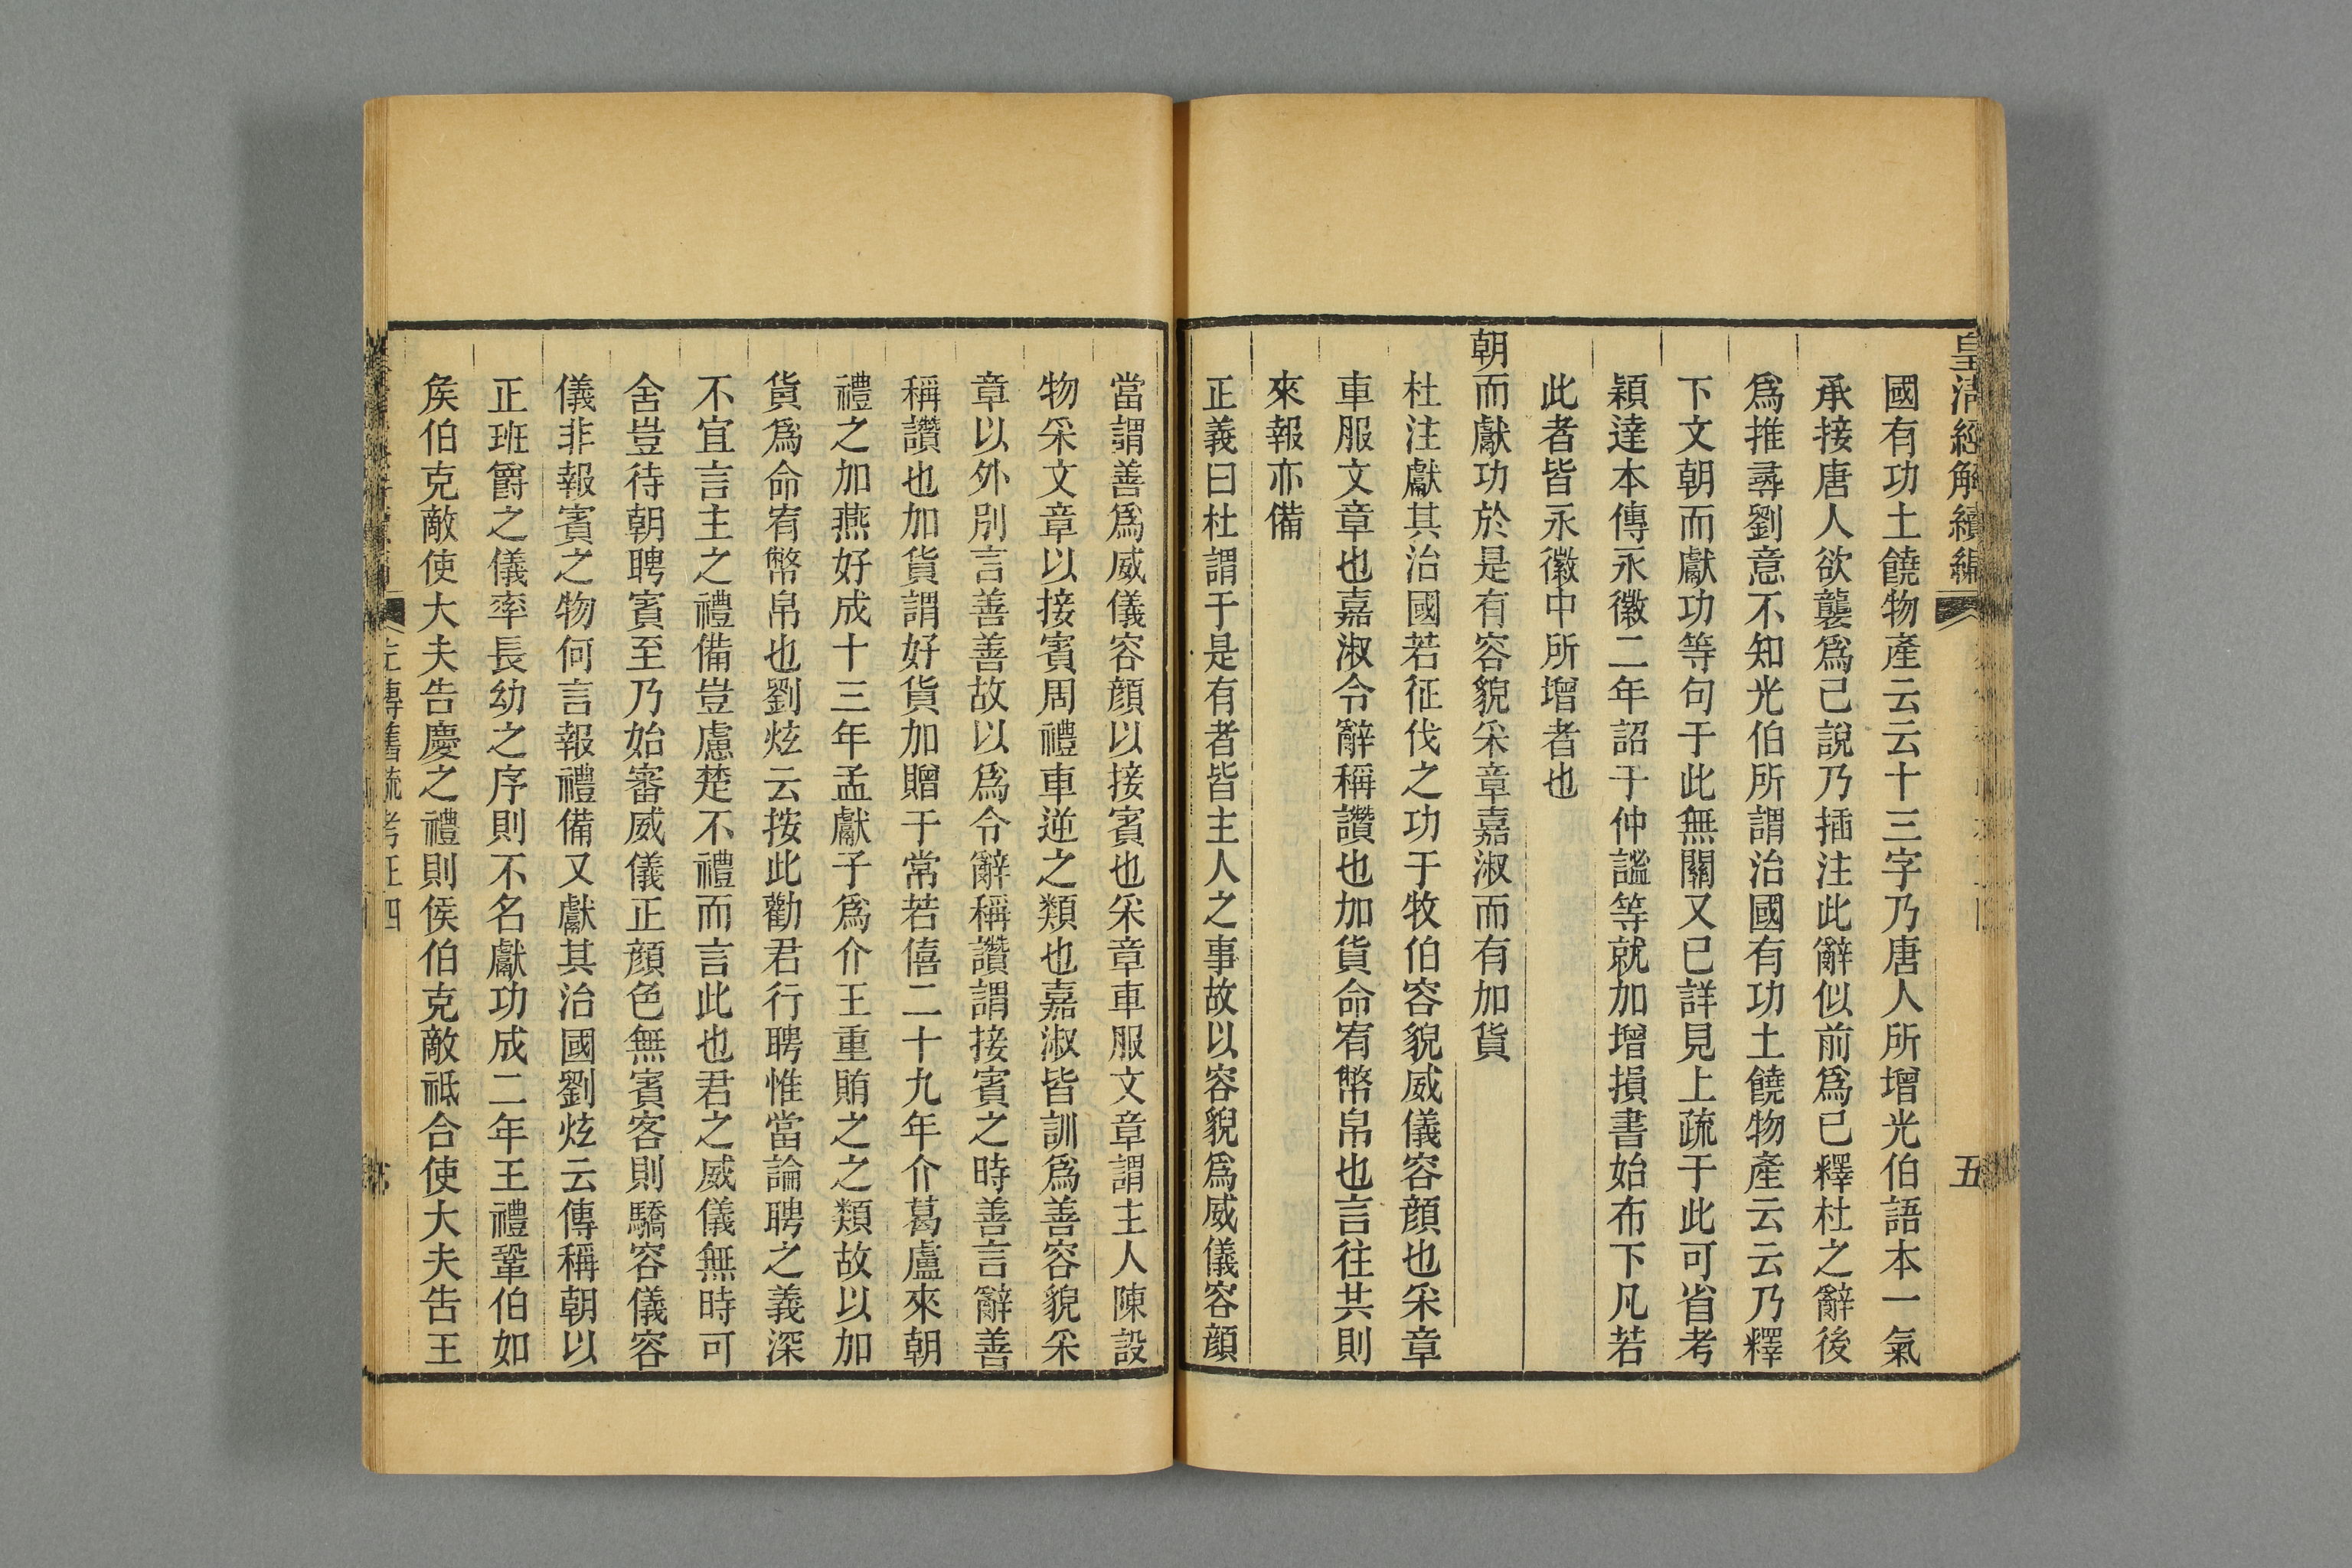 皇清經解續編
五
國有功土饒物產云云十三字乃唐人所增光伯語本一氣
承接唐人欲襲爲己說乃插注此辭似前爲已釋杜之辭後
爲推尋劉意不知光伯所謂治國有功土饒物產云云乃釋
下文朝而獻功等句于此無關又已詳見上疏于此可省考
穎達本傳永徽二年詔于仲謐等就加增損書始布下凡若
此者皆永徽中所增者也
朝而獻功於是有容貌采章嘉淑而有加貨
杜注獻其治國若征伐之功于牧伯容貌威儀容顏也采章
車服文章也嘉淑令辭稱讚也加貨命宥幣帛也言往共則
來報亦備
正義曰杜謂于是有者皆主人之事故以容貌爲威儀容顏
當謂善爲威儀容顏以接賓也采章車服文章謂主人陳設
物采文章以接賓周禮車逆之類也嘉淑皆訓爲善容貌采
章以外別言善善故以爲令辭稱讚謂接賓之時善言辭善
稱讚也加貨謂好貨加贈于常若僖二十九年介葛盧來朝
禮之加燕好成十三年孟獻子爲介王重賄之之類故以加
貨爲命宥幣帛也劉炫云按此勸君行聘惟當論聘之義深
不宜言主之禮備豈慮楚不禮而言此也君之威儀無時可
舍豈待朝聘賓至乃始審威儀正顏色無賓客則驕容儀容
儀非報賓之物何言報禮備又獻其治國劉炫云傳稱朝以
正班爵之儀率長幼之序則不名獻功成二年王禮鞏伯如
矦伯克敵使大夫告慶之禮則侯伯克敵祗合使大夫告王
左傳舊疏考正四